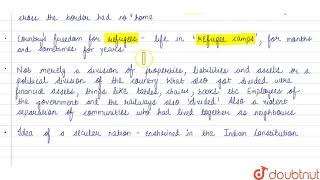 cross the border had no "home
• Country's freedom for refugees - life in 'Refugee camps', for months
and sometimes for years.
Not merely a division of properties, liabilities and assets or a
political division of the country. What also got divided were
financial assets, things like tables, chairs, books etc. Employees of
the government and the railways also 'divided'. Also a violent
separation of communities who had lived together as neighbours
• Idea of a secular nation - enshrined in the Indian Constitution
doubtnut